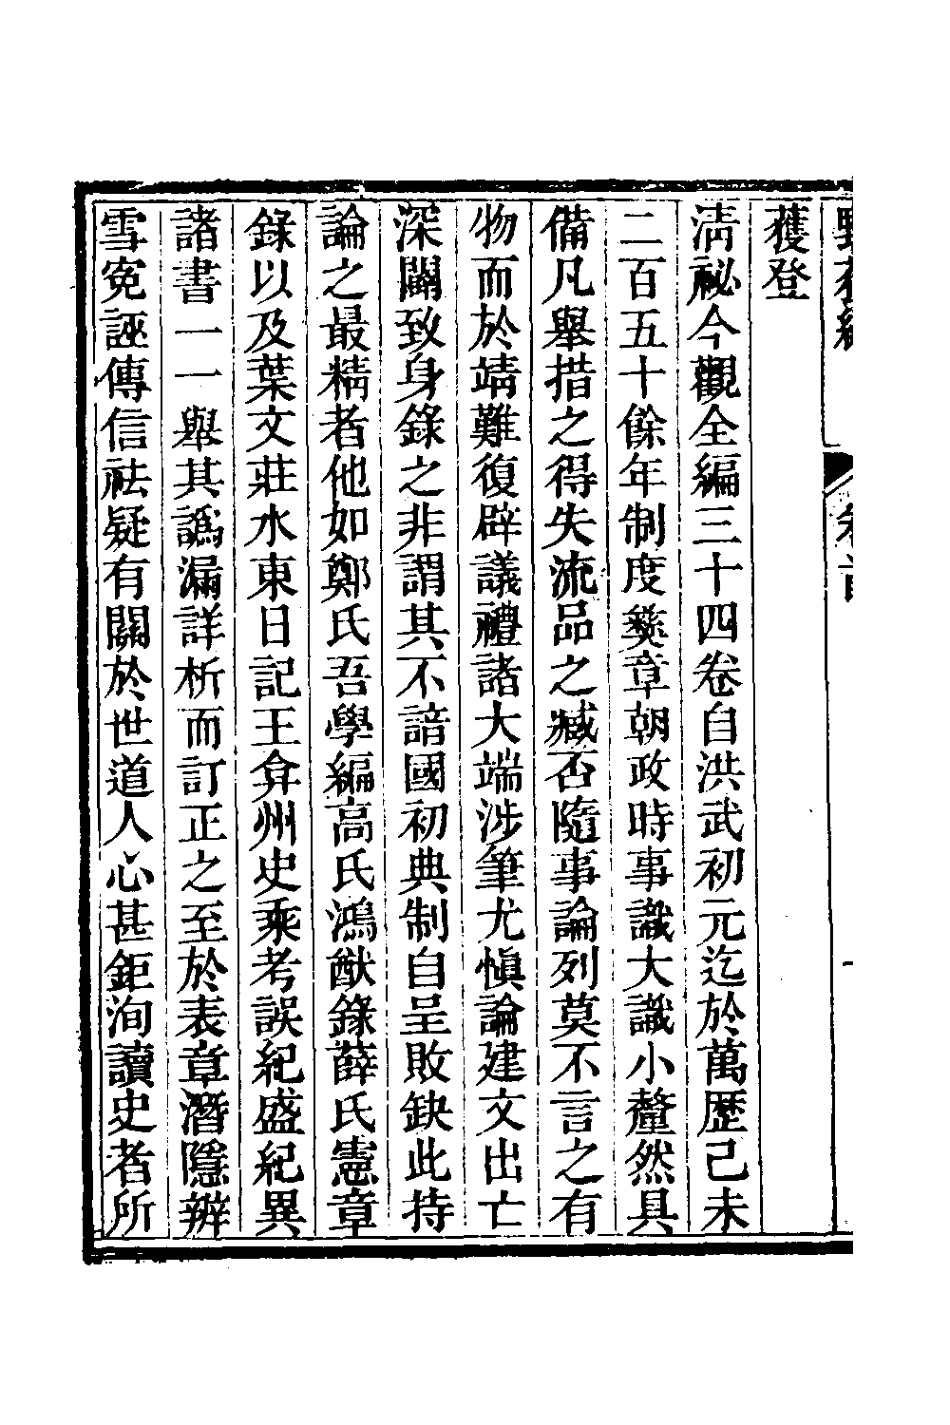 野獲編
卷首
一
獲登
清祕今觀全編三十四卷自洪武初元迄於萬歷己未
二百五十餘年制度彝章朝政時事識大識小釐然具
備凡舉措之得失流品之臧否隨事論列莫不言之有
物而於靖難復辟議禮諸大端涉筆尤愼論建文出亡
深闢致身錄之非謂其不諳國初典制自呈敗缺此持
論之最精者他如鄭氏吾學編高氏鴻猷錄薛氏憲章
錄以及葉文莊水東日記王弇州史乘考誤紀盛紀異
諸書一一舉其譌漏詳析而訂正之至於表章潛隱辨
雪寃誣傳信祛疑有關於世道人心甚鉅洵讀史者所